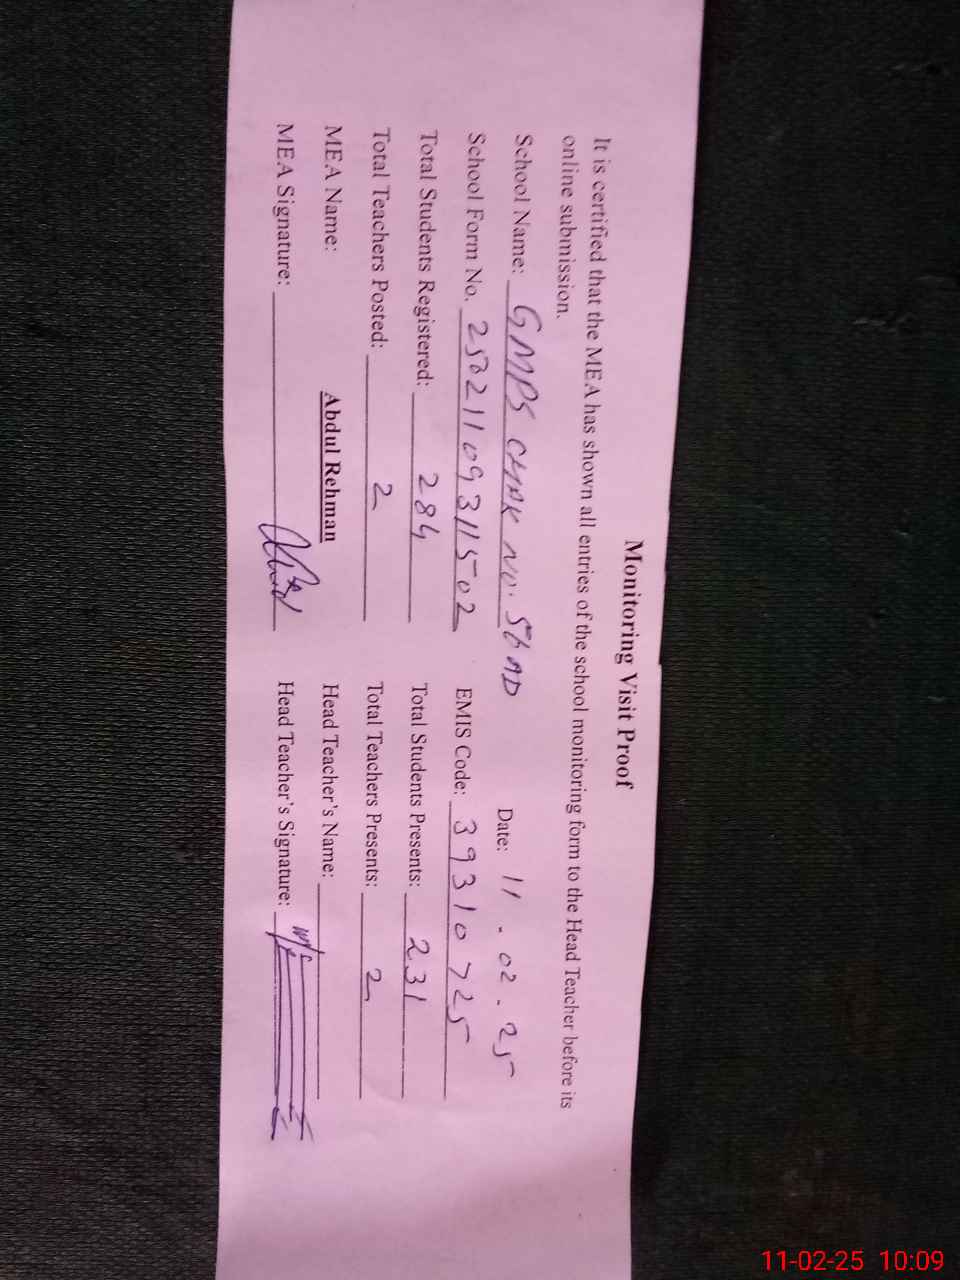 Monitoring Visit Proof
It is certified that the MEA has shown all entries of the school monitoring form to the Head Teacher before its
online submission.
School Name: GMPS CHAK NO. 56 AD Date: 11-02-25
School Form No. 25021109311502 EMIS Code: 39310725
Total Students Registered: 284 Total Students Presents: 231
Total Teachers Posted: 2 Total Teachers Presents: 2
MEA Name: Abdul Rehman Head Teacher's Name:
MEA Signature: Head Teacher's Signature:
11-02-25 10:09